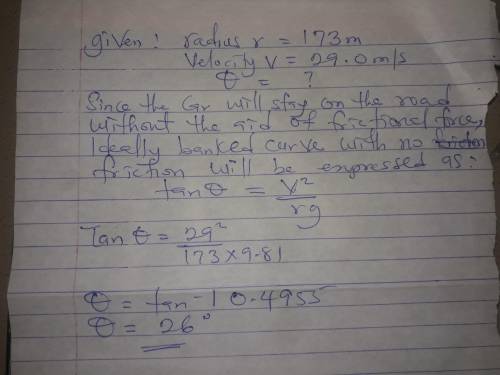 given: radius r = 173m
Velocity v = 29.0m/s
θ = ?
Since the Car will stay on the road
without the aid of frictional force,
Ideally banked curve with no
friction will be expressed as:
tanθ = V²/rg
Tan θ = 29²/173×9.81
θ = tan-1 0.4955
θ = 26°